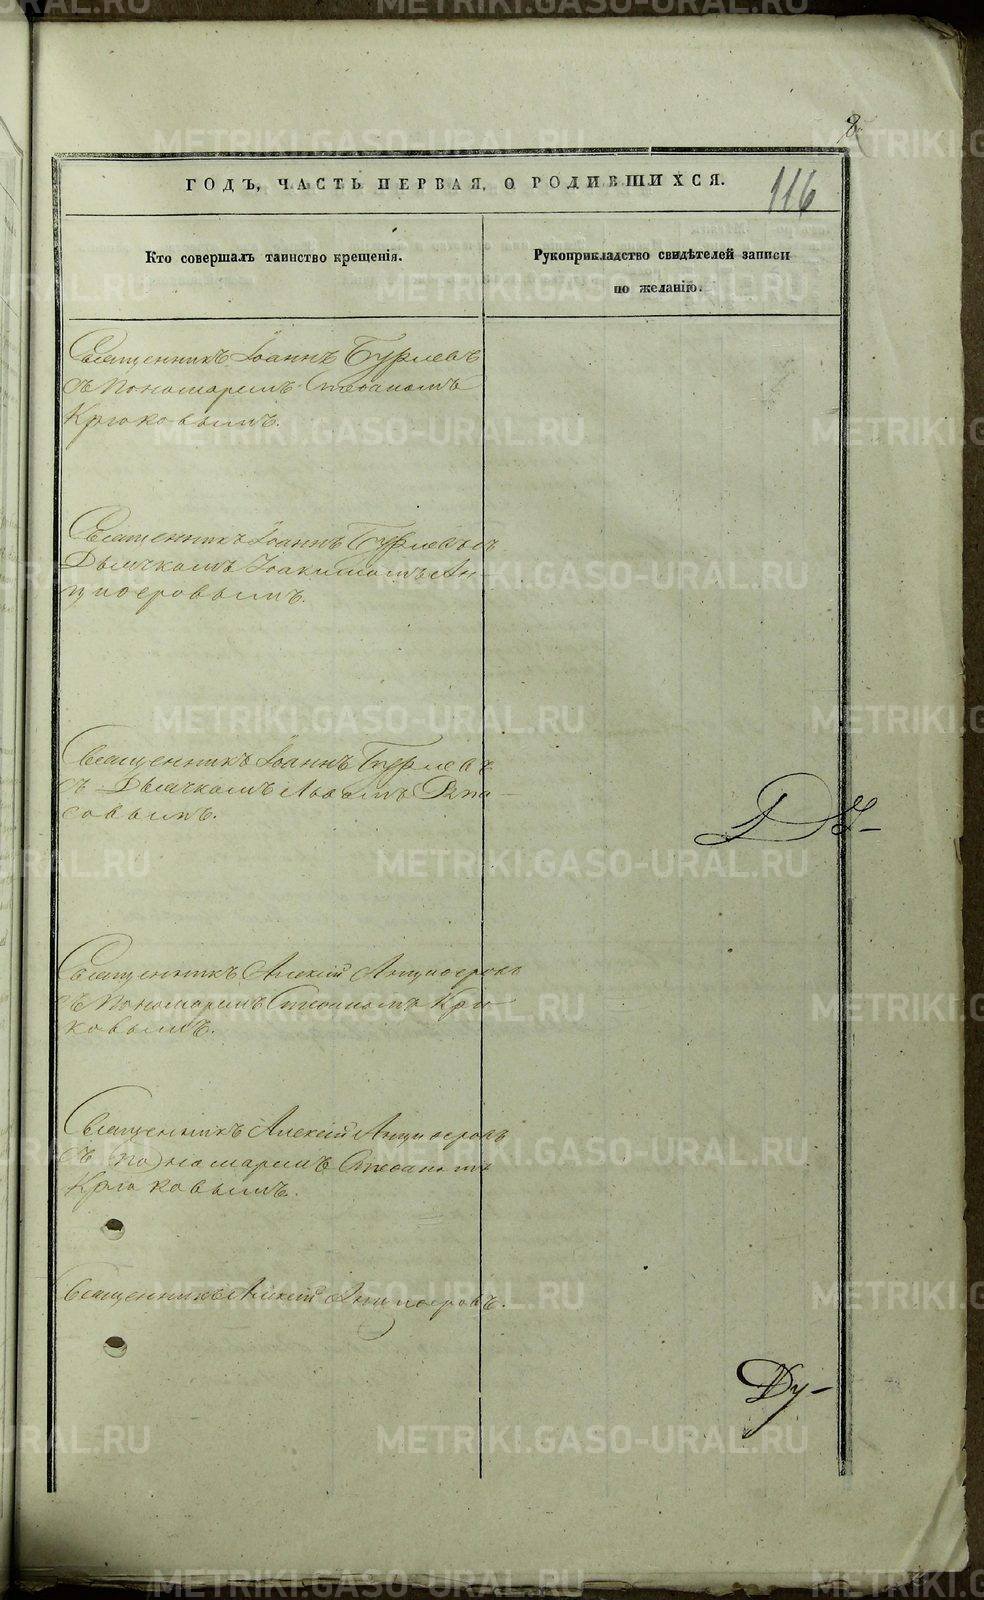 8
ГОДЪ, ЧАСТЬ ПЕРВАЯ, О РОДИВШИХСЯ.
116
Кто совершалъ таинство крещенія.
Рукоприкладство свидѣтелей записи
по желанію.
Священникъ Іоаннъ Бурлевъ
съ Пономаремъ Стефаномъ
Крюковымъ.
Священникъ Іоаннъ Бурлевъ съ
Дьячкомъ Іоакимомъ Ан-
циферовымъ.
Священникъ Іоаннъ Бурлевъ
съ Дьячкомъ Львомъ
совымъ.
Священникъ Алексій Анциферовъ
съ Пономаремъ Стефаномъ Крю-
ковымъ.
Священникъ Алексій Анциферовъ
съ Пономаремъ Стефаномъ
Крюковымъ.
Священникъ Алексій Анциферовъ.
Ду-
METRIKI.GASO-URAL.RU